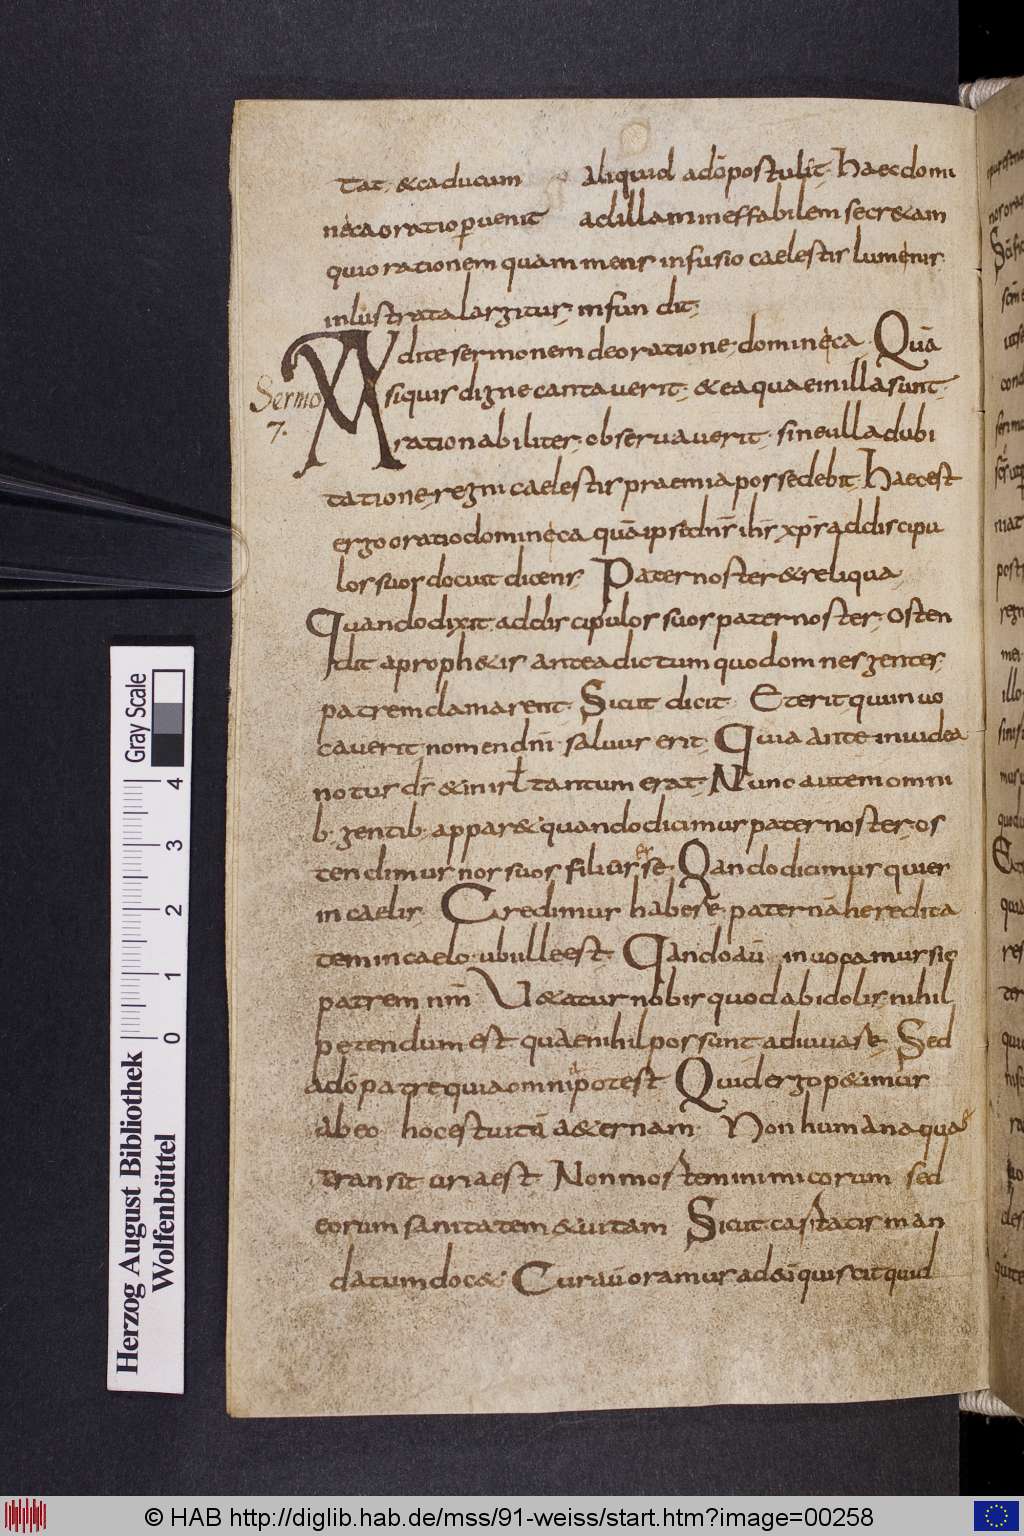 tat, & caducum aliquid adō postulit, haec domi
neca oratio pervenit ad illam ineffabilem secr&am
qui orationem quam mens infusio caelestis lumenis
inlustrata largitur, infundit,
Audite sermonem de oratione, domineca, Quā
Sermo 7.
siquis digne cantaverit, & ea quae in illa sunt,
rationabiliter, observaverit, sine ulla dubi
tatione, regni caelestis praemia possedebit, haec est
ergo oratio domineca quā ipse dn̄s ih̄s xp̄s ad discipu
los suos docuit dicens, Pater noster & reliqua
Quando dixit, ad discipulos suos pater noster, osten
dit a proph&is antea dictum quod omnes gentes,
patrem clamarent, Sicut dicit, Et erit qui invo
caverit, nomen dn̄i salvus erit, Quia ante in iudea
notus ds̄ & in isrl̄ tantum erat, Nunc autem omni
b· gentib· appar& quando dicimus pater noster, os
tendimus nos suos filius esse, Qando dicimus qui es
in caelis, Credimus habere paternā heredita
tem in caelo, ubi ille est, Qando aū invocamus sic
patrem nrm̄ V&atur nobis quod ab idolis, nihil
petendum est quae nihil possunt adiuvare, Sed
adō patre quia omnia potest Quid ergo p&imus
ab eo hoc est vitā a&ernam, Non humana quae
transit
Non mostem inimicorum sed
eorum sanitatem & vitam Sicut castitatis man
datum doc& Cur aū oramus
Herzog August Bibliothek
Wolfenbüttel
0 1 2 3 4
Gray Scale
© HAB http://diglib.hab.de/mss/91-weiss/start.htm?image=00258